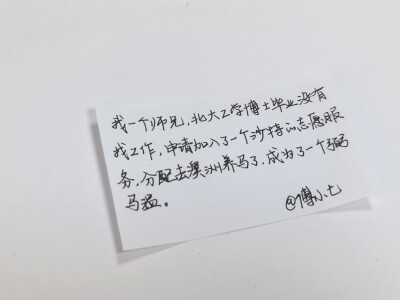 我一个师兄,北大工学博士毕业没有
找工作,申请加入了一个沙特的志愿服
务,分配去澳洲养马了,成为了一个弼
马温。